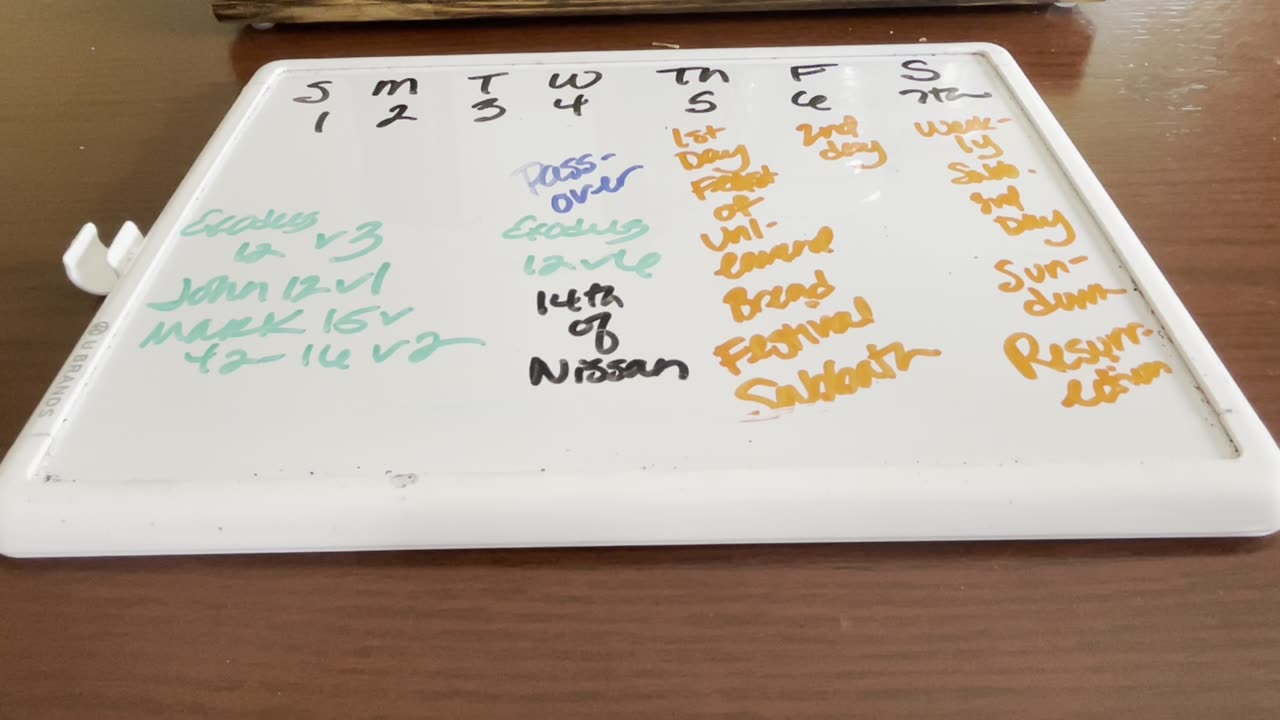 S M T W Th F S
1 2 3 4 5 6 7th
Pass-
over
Exodus
12 v3
John 12 v1
Mark 15 v
42-16 v2
Exodus
12 v6
14th
of
Nissan
1st
Day
Feast
of
Unl-
Bread
Festival
Sabbath
2nd
day
Week-
ly
Sab.
3rd
Day
Sun-
down
Resurr-
ection
U BRANDS